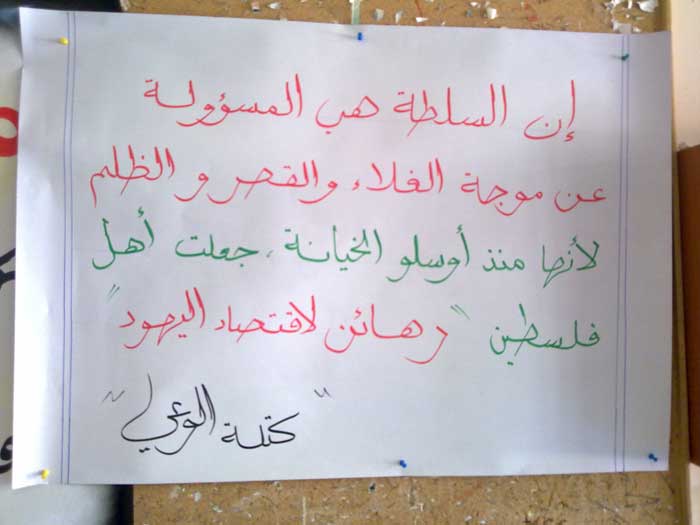 إن السلطة هي المسؤولة
عن موجة الغلاء والقهر و الظلم
لأنها منذ أوسلو الخيانة، جعلت أهل
فلسطين "رهائن لاقتصاد اليهود"
"كتلة الوعي"